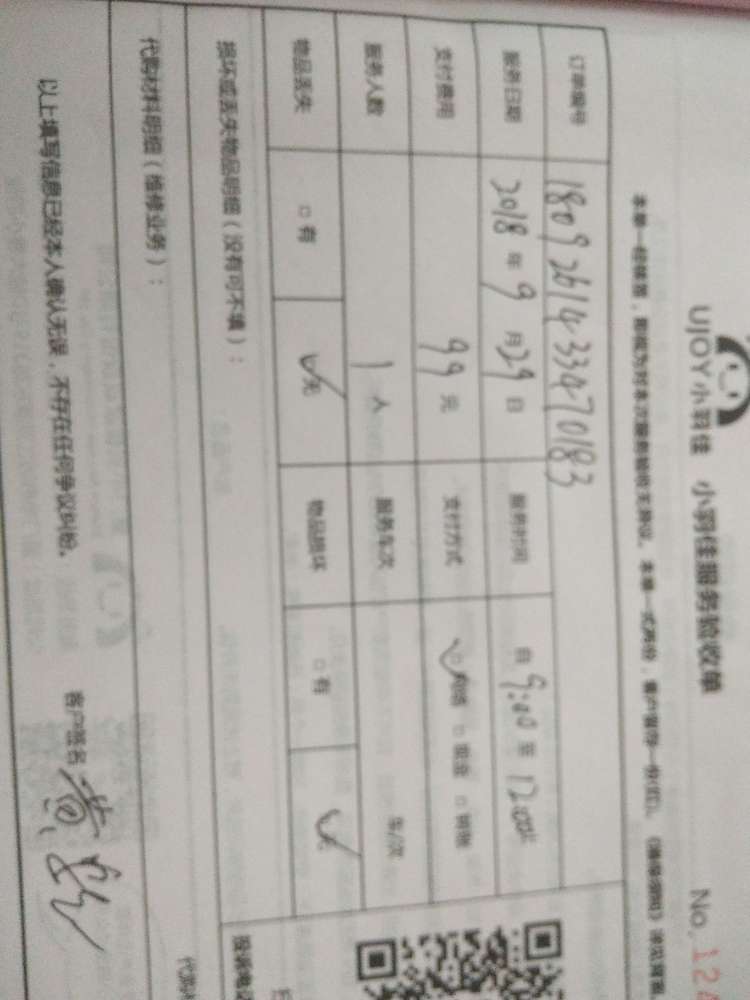 UJOY小羽佳 小羽佳服务验收单 No. 12
本单一经签署，即视为对本次服务验收无异议。本单一式两份，客户留存一份(红)。
订单编号 1809261433470183
服务日期 2018年9月29日 服务时间 自9:00至12:00
支付费用 99元 支付方式 □网络 □现金 □转账
服务人数 1人 服务车次 车/次
物品丢失 □有 无 物品损坏 □有 无
损坏或丢失物品明细（没有可不填）：
代购材料明细（维修业务）：
以上填写信息已经本人确认无误，不存在任何争议纠纷。 客户签名
投诉电话